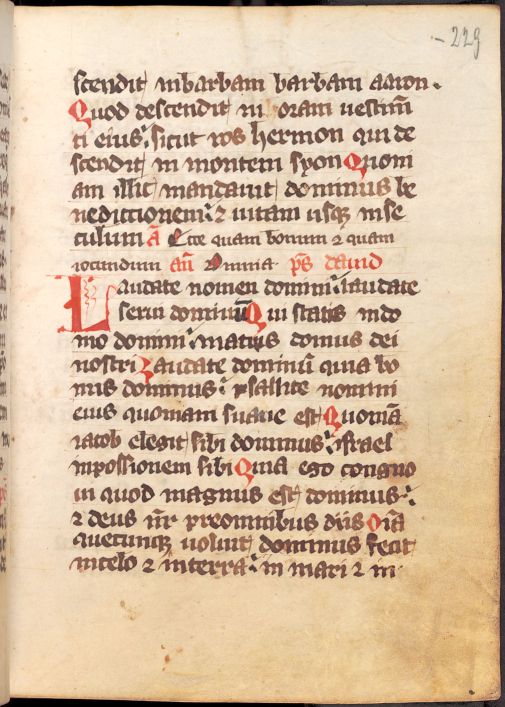 - 229
scendit inbarbam barbam aaron.
Quod descendit in oram uestim̄
ti eius: sicut ros hermon qui de
scendit in montem syon Quoni
am illic mandauit dominus be
nedictionem: ⁊ uitam usqꝫ inse
culum A Ecce quam bonum ⁊ quam
iocundum an̄ Omnia ps̄ dauid
Laudate nomen domini: laudate
serui dominū Qui statis indo
mo domini: inatriis domus dei
nostri Laudate dominū quia bo
nus dominus: psallite nomini
eius quoniam suaue est Quoniā
iacob elegit sibi dominus: israel
inpossionem sibi Quia ego congno
ui quod magnus est dominus:
⁊ deus nr̄ preomnibus diis Oīa
quecunqꝫ uoluit dominus fecit
incelo ⁊ interra: in mari ⁊ in